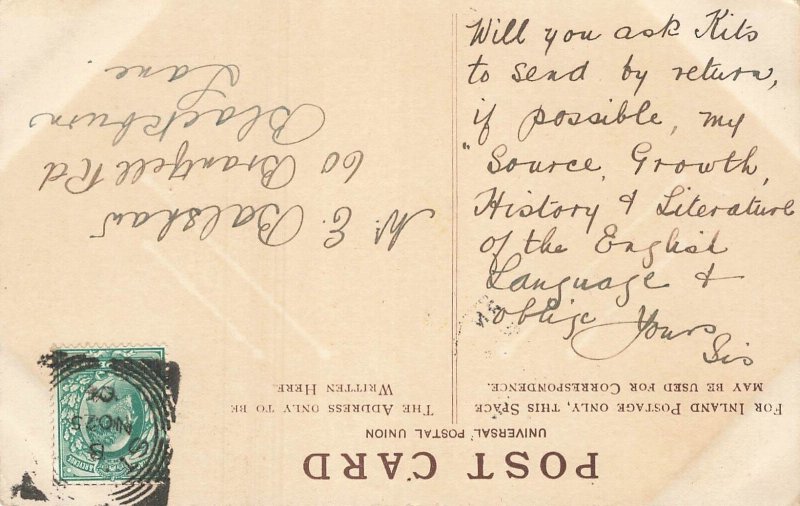 Will you ask Kits
to send by return,
if possible, my
"Source, Growth,
History & Literature
of the English
Language &
oblige Yours
Sis
POST CARD
UNIVERSAL POSTAL UNION
FOR INLAND POSTAGE ONLY, THIS SPACE
MAY BE USED FOR CORRESPONDENCE.
THE ADDRESS ONLY TO BE
WRITTEN HERE.
E. Balshaw
60 Brantfell Rd
Blackburn
Lane.